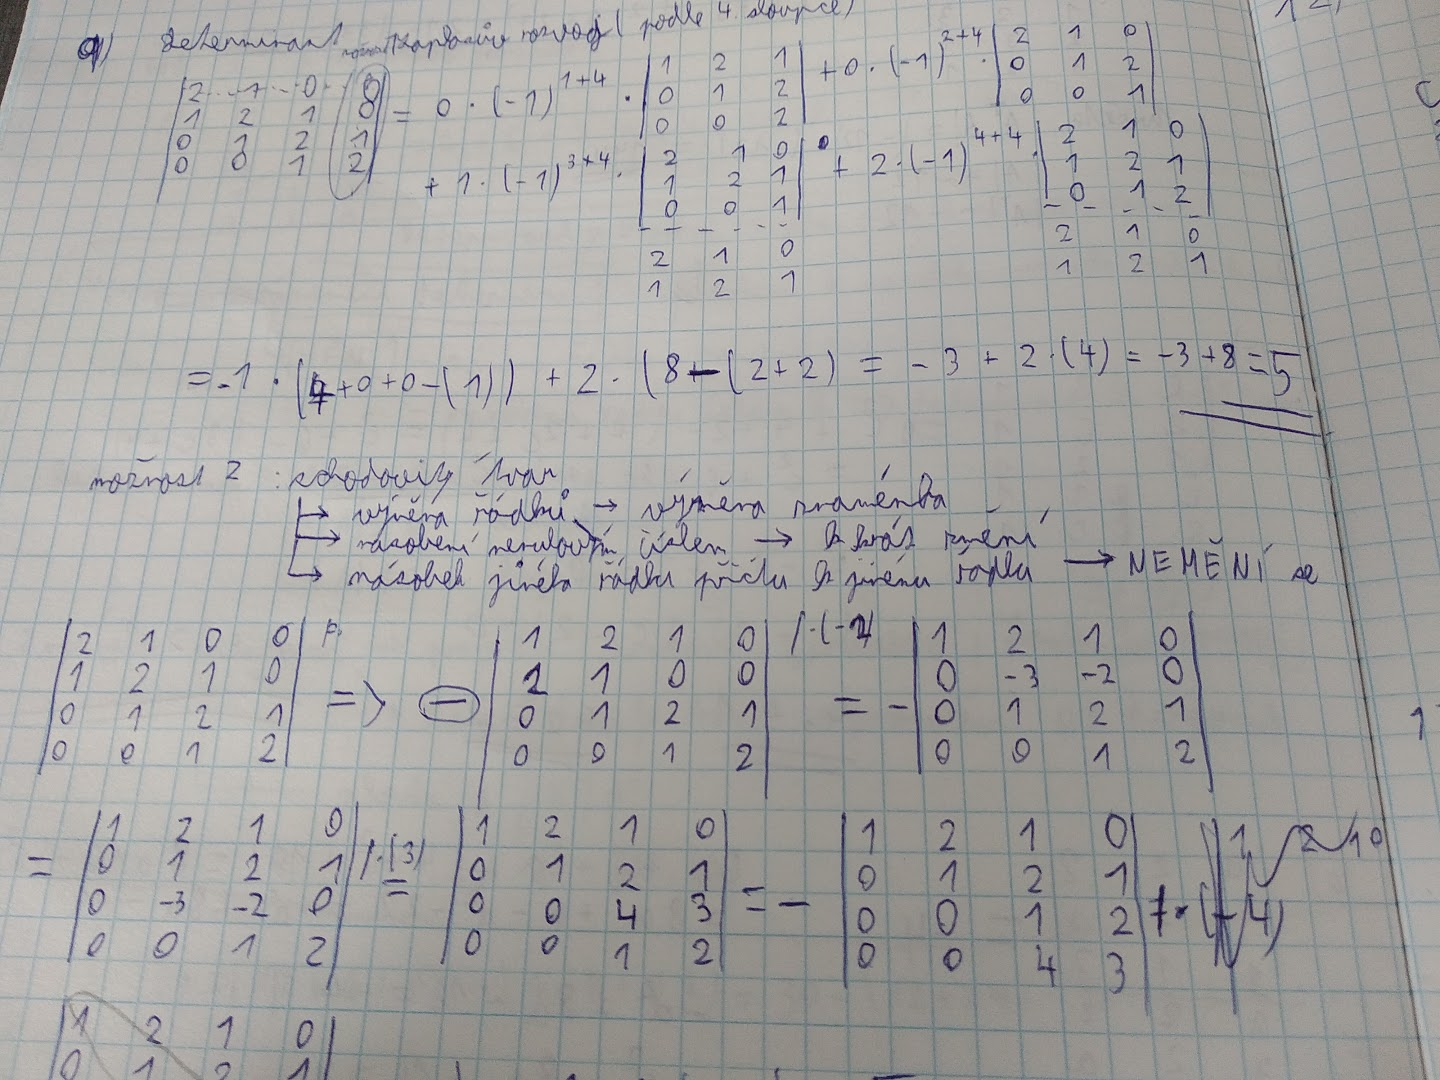 determinant rozvoj (podle 4. sloupce)
|2 1 0 0|
|1 2 1 0|
|0 1 2 1|
|0 0 1 2|
= 0 · (-1)^{1+4} ·
|1 2 1|
|0 1 2|
|0 0 2|
+ 0 · (-1)^{2+4} ·
|2 1 0|
|0 1 2|
|0 0 1|
+ 1 · (-1)^{3+4} ·
|2 1 0|
|1 2 1|
|0 0 1|
2 1 0
1 2 1
+ 2 · (-1)^{4+4} ·
|2 1 0|
|1 2 1|
|0 1 2|
2 1 0
1 2 1
= -1 · (4+0+0-(1)) + 2 · (8-(2+2) = -3 + 2·(4) = -3+8=5
možnost 2 : schodovitý tvar
↳ výměna řádků → výměna znaménka
↳ násobení nenulovým číslem → krát změní
↳ násobek jiného řádku přičtu k jinému řádku → NEMĚNÍ se
|2 1 0 0|
|1 2 1 0|
|0 1 2 1|
|0 0 1 2|
=> -
|1 2 1 0| /·(-2)
|2 1 0 0|
|0 1 2 1|
|0 0 1 2|
= -
|1 2 1 0|
|0 -3 -2 0|
|0 1 2 1|
|0 0 1 2|
=
|1 2 1 0|
|0 1 2 1| /·(3)
|0 -3 -2 0|
|0 0 1 2|
=
|1 2 1 0|
|0 1 2 1|
|0 0 4 3|
|0 0 1 2|
= -
|1 2 1 0|
|0 1 2 1|
|0 0 1 2| /·(-4)
|0 0 4 3|
|1 2 1 0|
|0 1 2 1|